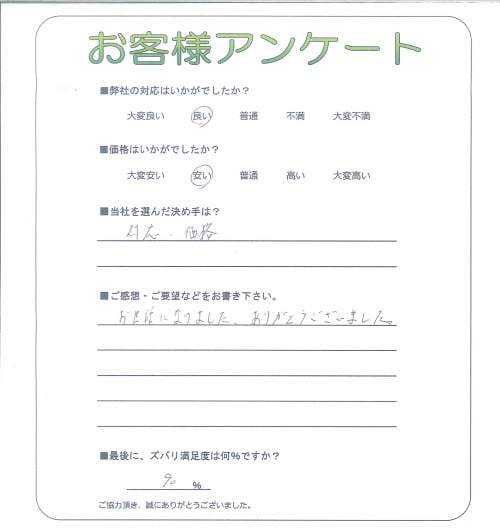 お客様アンケート
■弊社の対応はいかがでしたか？
大変良い 良い 普通 不満 大変不満
■価格はいかがでしたか？
大変安い 安い 普通 高い 大変高い
■当社を選んだ決め手は？
対応、価格
■ご感想・ご要望などをお書き下さい。
お世話になりました、ありがとうございました。
■最後に、ズバリ満足度は何％ですか？
90 ％
ご協力頂き、誠にありがとうございました。